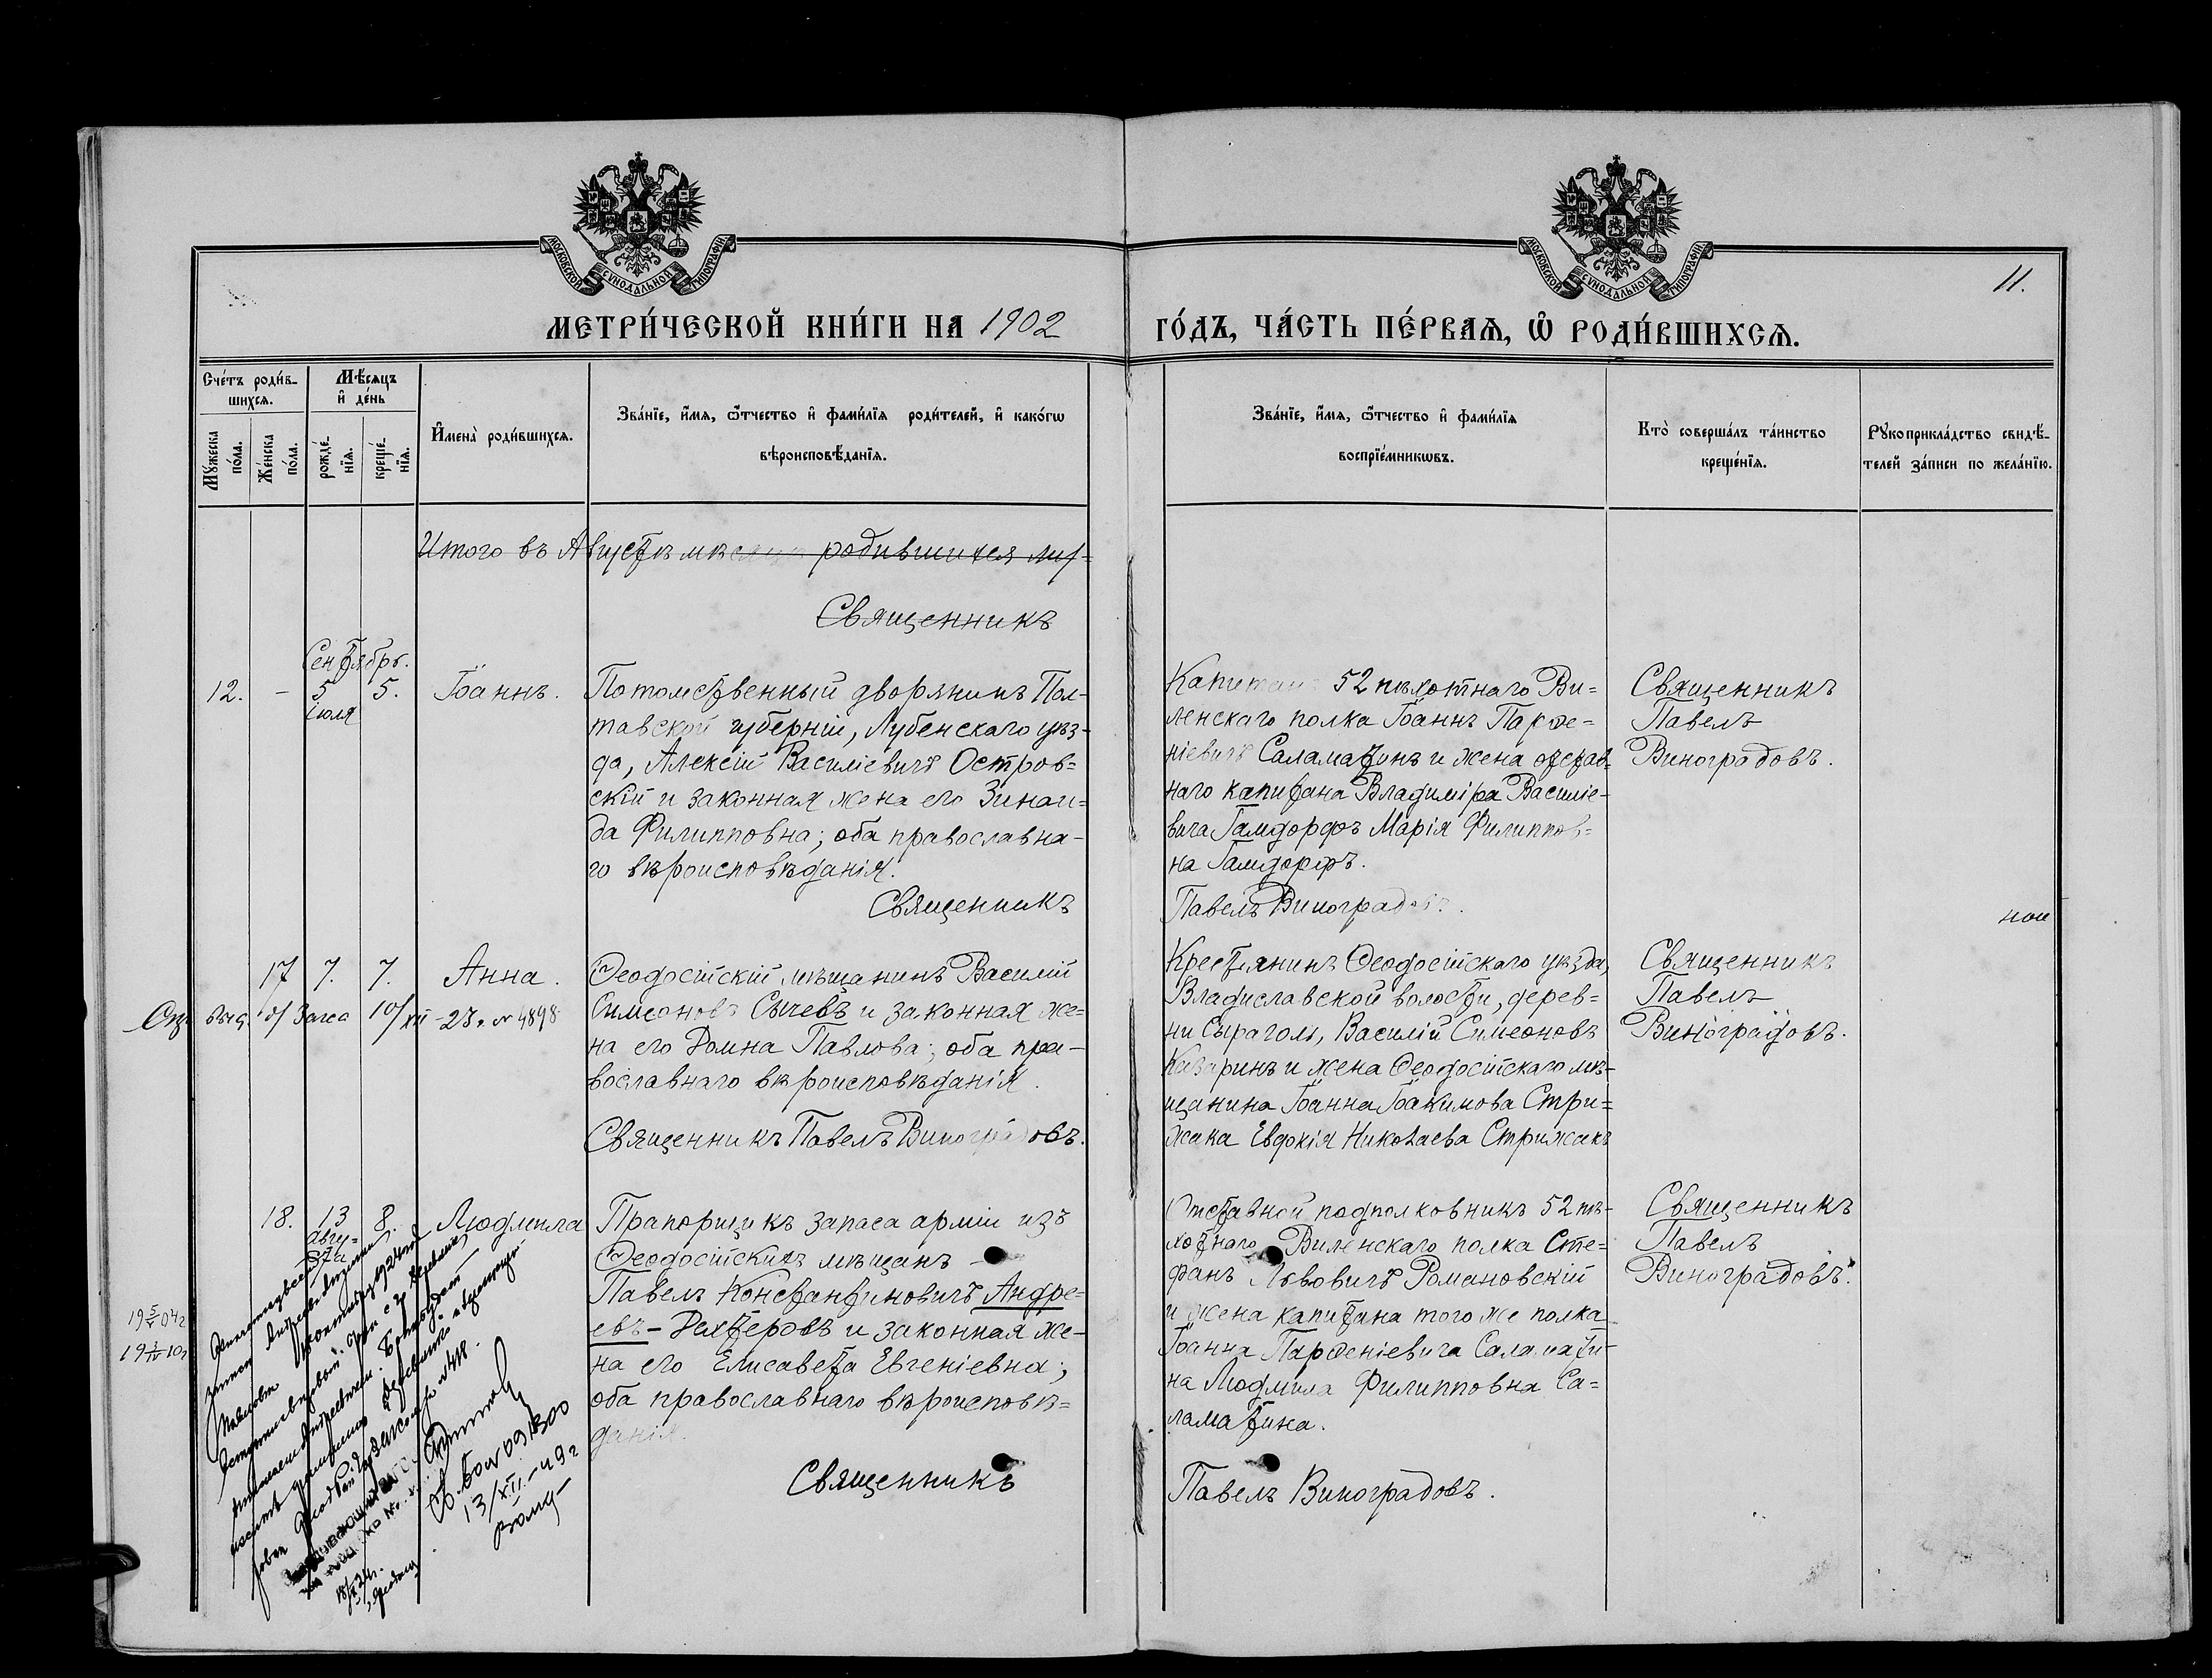 МОСКОВСКОЙ СУНОДАЛЬНОЙ ТИПОГРАФІИ
МОСКОВСКОЙ СУНОДАЛЬНОЙ ТИПОГРАФІИ
11.
МЕТРИ́ЧЕСКОЙ КНИ́ГИ НА 1902
ГО́ДЪ, ЧА́СТЬ ПЕ́РВАѦ, Ѽ РОДИ́ВШИХСѦ.
Сче́тъ роди́в-
шихсѧ.
Мѣ́сѧцъ
и҆ де́нь
Мꙋ́жеска
по́ла.
Же́нска
по́ла.
рожде́-
нїѧ.
креще́-
нїѧ.
И҆мена̀ роди́вшихсѧ.
Зва́нїе, и҆́мѧ, ѻ҆́тчество и҆ фами́лїѧ роди́телей, и҆ како́гѡ
вѣроисповѣ́данїѧ.
Зва́нїе, и҆́мѧ, ѻ҆́тчество и҆ фами́лїѧ
воспрїе́мникѡвъ.
Кто̀ соверша́лъ та́инство
креще́нїѧ.
Рꙋкоприкла́дство свидѣ́-
телей за́писи по жела́нїю.
Итого въ Августѣ мѣсяцѣ родившихся
Священникъ
Сентябрь.
12. - 5 5. Іоаннъ.
іюля
Потомственный дворянинъ Пол-
тавской губерніи, Лубенскаго уѣз-
да, Алексій Василіевичъ Остров=
скій и законная жена его Зинаи=
да Филипповна; оба православна-
го вѣроисповѣданія.
Священникъ
Капитанъ 52 пѣхотнаго Ви=
ленскаго полка Іоаннъ Парѳе=
ніевичъ Саламатинъ и жена отстав=
наго капитана Владиміра Василіе-
вича Гамдорфъ Марія Филиппов=
на Гамдорфъ.
Павелъ Виноградовъ.
Священникъ
Павелъ
Виноградовъ.
17 7. 7. Анна.
10/XII-23 г. № 4898
Ѳеодосійскій мѣщанинъ Василій
Симеоновъ Сычевъ и законная же=
на его Домна Павлова; оба пра-
вославнаго вѣроисповѣданія.
Священникъ Павелъ Виноградовъ.
Крестьянинъ Ѳеодосійскаго уѣзда,
Владиславской волости, дерев=
ни Сыраголъ, Василій Симеоновъ
Казаринъ и жена Ѳеодосійскаго мѣ-
щанина Іоанна Іоакимова Стри=
жака Евдокія Николаева Стрижакъ
Священникъ
Павелъ
Виноградовъ.
18. 13 8. Людмила
Авгу=
ста
Прапорщикъ запаса арміи изъ
Ѳеодосійскихъ мѣщанъ -
Павелъ Константиновичъ Андре=
евъ-Дехтеровъ и законная же-
на его Елисавета Евгеніевна;
оба православнаго вѣроисповѣ=
данія.
Священникъ
Отставной подполковникъ 52 пѣ-
хотнаго Виленскаго полка Сте=
фанъ Львовичъ Романовскій
и жена капитана того же полка
Іоанна Парѳеніевича Саламати-
на Людмила Филипповна Са=
ламатина.
Павелъ Виноградовъ.
Священникъ
Павелъ
Виноградовъ.
13/XII-49 г